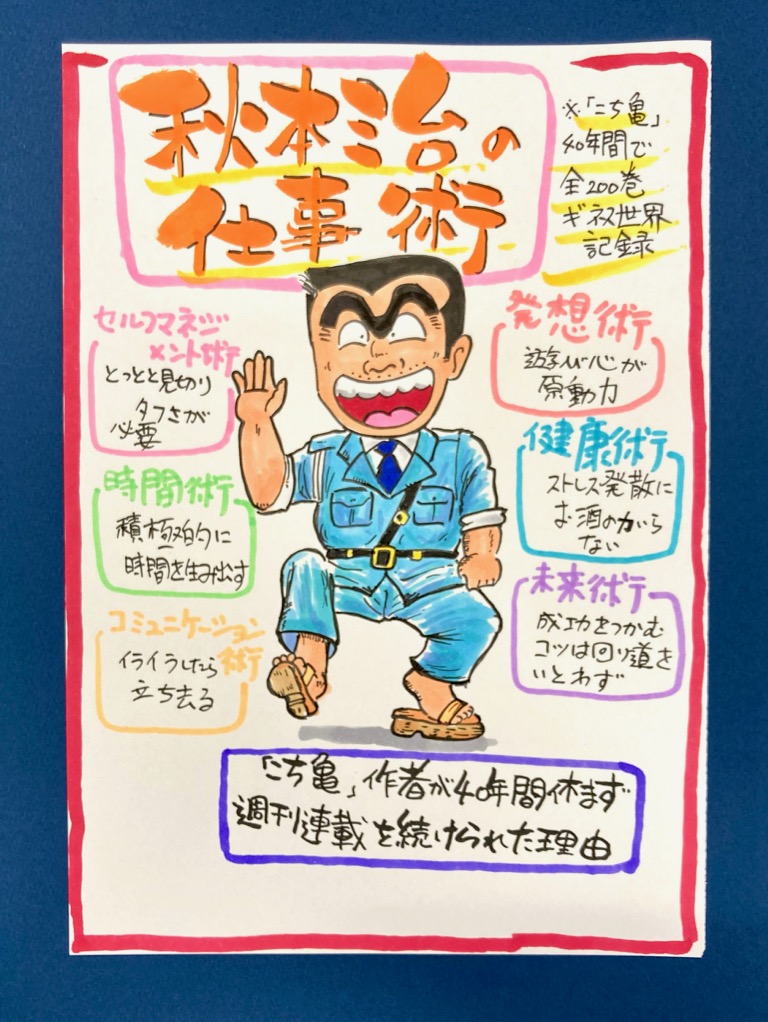 秋本治の
仕事術
※「こち亀」
40年間で
全200巻
ギネス世界
記録
セルフマネジ
メント術
とっとと見切り
タフさが
必要
時間術
積極的に
時間を生み出す
コミュニケーション
術
イライラしたら
立ち去る
発想術
遊び心が
原動力
健康術
ストレス発散に
お酒のがら
ない
未来術
成功をつかむ
コツは回り道を
いとわず
「こち亀」作者が40年間休まず
週刊連載を続けられた理由